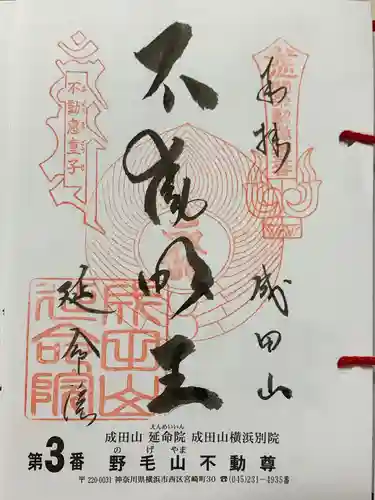 奉拝
成田山
不動明王
延命院
不動意童子
成田山
延命院
えんめいいん
成田山 延命院 成田山横浜別院
のげやま
第3番 野毛山不動尊
〒220-0031 神奈川県横浜市西区宮崎町30 ☎(045)231-4935番